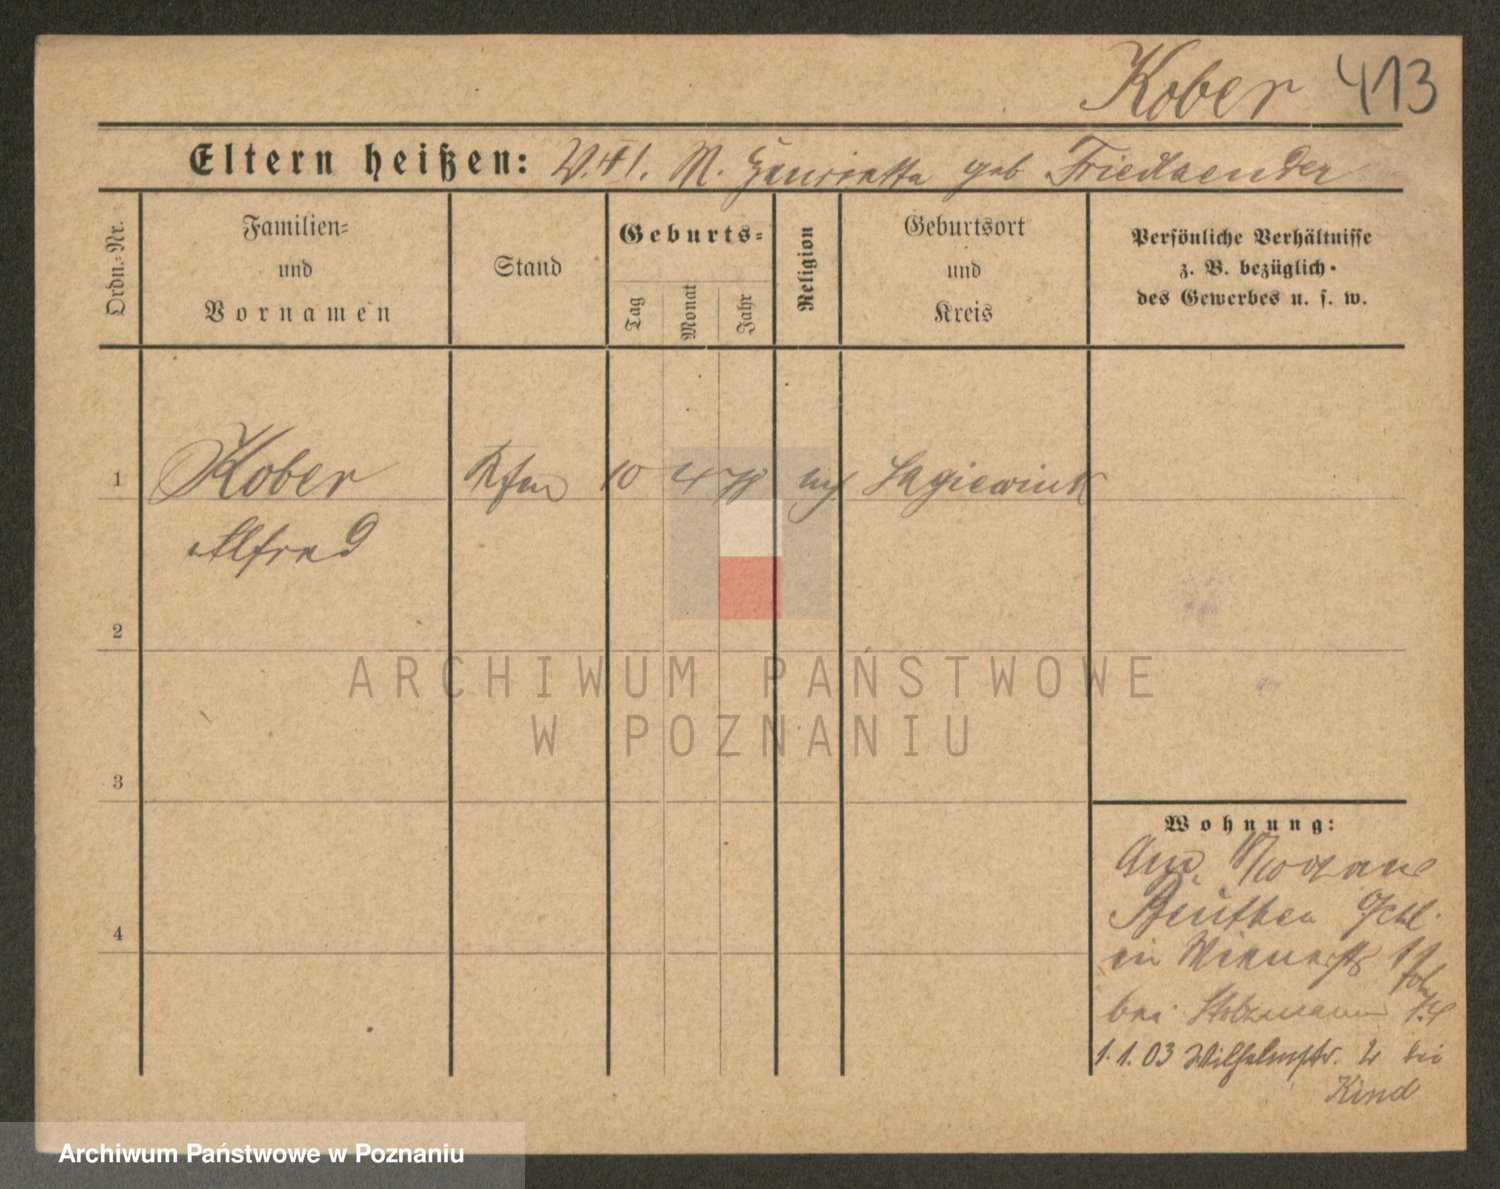 Kober 413
Eltern heißen: V. M. Henriette geb Friedlaender
Ordn.-Nr.
Familien-
und
Vornamen
Stand
Geburts-
Tag
Monat
Jahr
Religion
Geburtsort
und
Kreis
Persönliche Verhältnisse
z. B. bezüglich
des Gewerbes u. s. w.
1 Kober Kfm 10 4 78
Alfred
2
3
4
Wohnung:
Beuthen
in 11
bei Holzmann
1.1.03 Wilhelmstr. 2 bei
Kind
ARCHIWUM PAŃSTWOWE
W POZNANIU
Archiwum Państwowe w Poznaniu